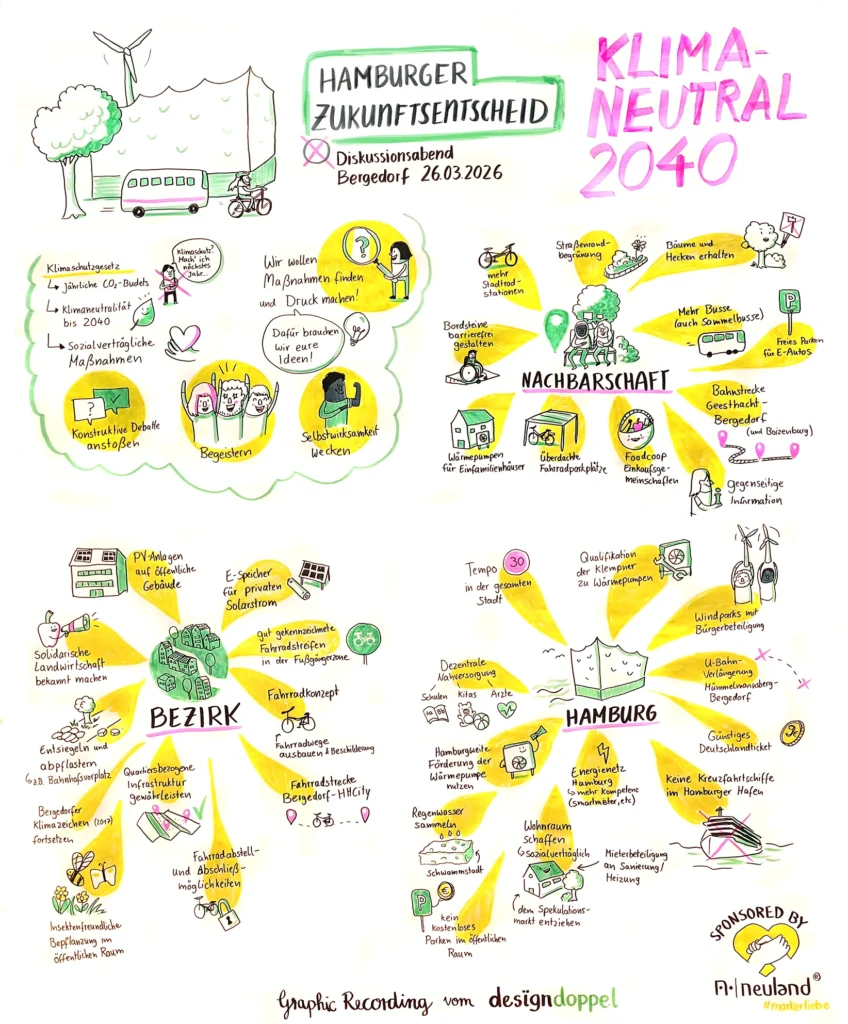 HAMBURGER
ZUKUNFTSENTSCHEID
Diskussionsabend
Bergedorf 26.03.2026
KLIMA-
NEUTRAL
2040
Klimaschutzgesetz
↳ jährliche CO₂-Budets
↳ Klimaneutralität
bis 2040
↳ Sozialverträgliche
Maßnahmen
Klimaschutz?
Mach' ich
nächstes
Jahr...
Wir wollen
Maßnahmen finden
und Druck machen!
?
Dafür brauchen
wir eure
Ideen!
?
Konstruktive Debatte
anstoßen
Begeistern
Selbstwirksamkeit
wecken
NACHBARSCHAFT
mehr
Stadtrad-
stationen
Straßenrand-
begrünung
Bäume und
Hecken erhalten
Bordsteine
barrierefrei
gestalten
Mehr Busse
(auch Sammelbusse)
P
Freies Parken
für E-Autos
Bahnstrecke
Geesthacht-
Bergedorf
(und Boizenburg)
Wärmepumpen
für Einfamilienhäuser
Überdachte
Fahrradparkplätze
Foodcoop
Einkaufsge-
meinschaften
i
gegenseitige
Information
BEZIRK
PV-Anlagen
auf öffentliche
Gebäude
E-Speicher
für privaten
Solarstrom
Solidarische
Landwirtschaft
bekannt machen
gut gekennzeichnete
Fahrradstreifen
in der Fußgängerzone
Fahrradkonzept
Fahrradwege
ausbauen & Beschilderung
Entsiegeln und
abpflastern
↳ z.B. Bahnhofsvorplatz
Quartiersbezogene
Infrastruktur
gewährleisten
Fahrradstrecke
Bergedorf-HHCity
Bergedorfer
Klimazeichen (2017)
fortsetzen
Fahrradabstell-
und Abschließ-
möglichkeiten
Insektenfreundliche
Bepflanzung im
öffentlichen Raum
HAMBURG
Tempo 30
in der gesamten
Stadt
Qualifikation
der Klempner
zu Wärmepumpen
Windparks mit
Bürgerbeteiligung
Dezentrale
Nahversorgung
Schulen Kitas Ärzte
U-Bahn-
Verlängerung
Mümmelmannsberg-
Bergedorf
Günstiges
Deutschlandticket
Hamburgweite
Förderung der
Wärmepumpe
nutzen
Energienetz
Hamburg
↳ mehr Kompetenz
(smartmeter, etc)
Keine Kreuzfahrtschiffe
im Hamburger Hafen
Regenwasser
sammeln
Schwammstadt
Wohnraum
schaffen
↳ Sozialverträglich
Mieterbeteiligung
an Sanierung/
Heizung
dem Spekulations-
markt entziehen
P
€
kein
kostenloses
Parken im öffentlichen
Raum
SPONSORED BY
neuland®
#markerliebe
Graphic Recording vom designdoppel